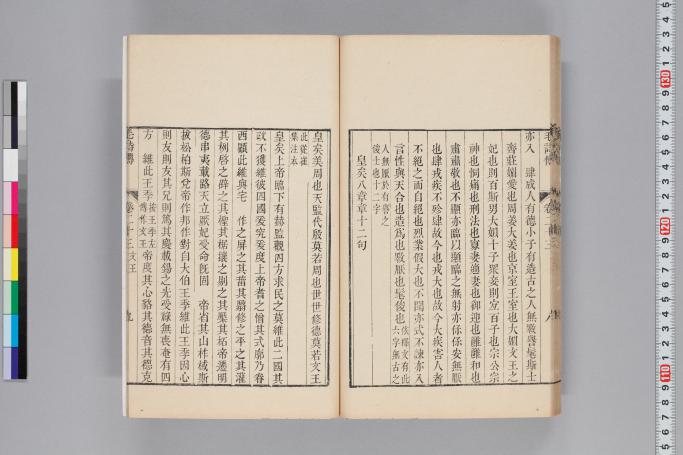 亦入　肆成人有德小子有造古之人無斁譽髦斯士
齊莊媚愛也周姜大姜也京室王室也大姒文王之
妃也則百斯男大姒十子眾妾則宜百子也宗公宗
神也恫痛也刑法也寡妻適妻也御迎也雝雝和也
肅肅敬也不顯亦臨以顯臨之無射亦保保安無厭
也肆故今也戎大也故今大疾害人者
不絕之而自絕也烈業假大也不聞亦式不諫亦入
言性與天合也造為也斁厭也髦俊也
人無厭於有譽之
俊士也十二字
皇矣八章章十二句
皇矣美周也天監代殷莫若周也世世修德莫若文王
此從崔
集注本
皇矣上帝臨下有赫監觀四方求民之莫維此二國其
政不獲維彼四國爰究爰度上帝耆之憎其式廓乃眷
西顧此維與宅　作之屏之其菑其翳修之平之其灌
其栵啟之辟之其檉其椐攘之剔之其檿其柘帝遷明
德串夷載路天立厥妃受命既固　帝省其山柞棫斯
拔松柏斯兌帝作邦作對自大伯王季維此王季因心
則友則友其兄則篤其慶載錫之光受祿無喪奄有四
方　維此王季帝度其心貊其德音其德克